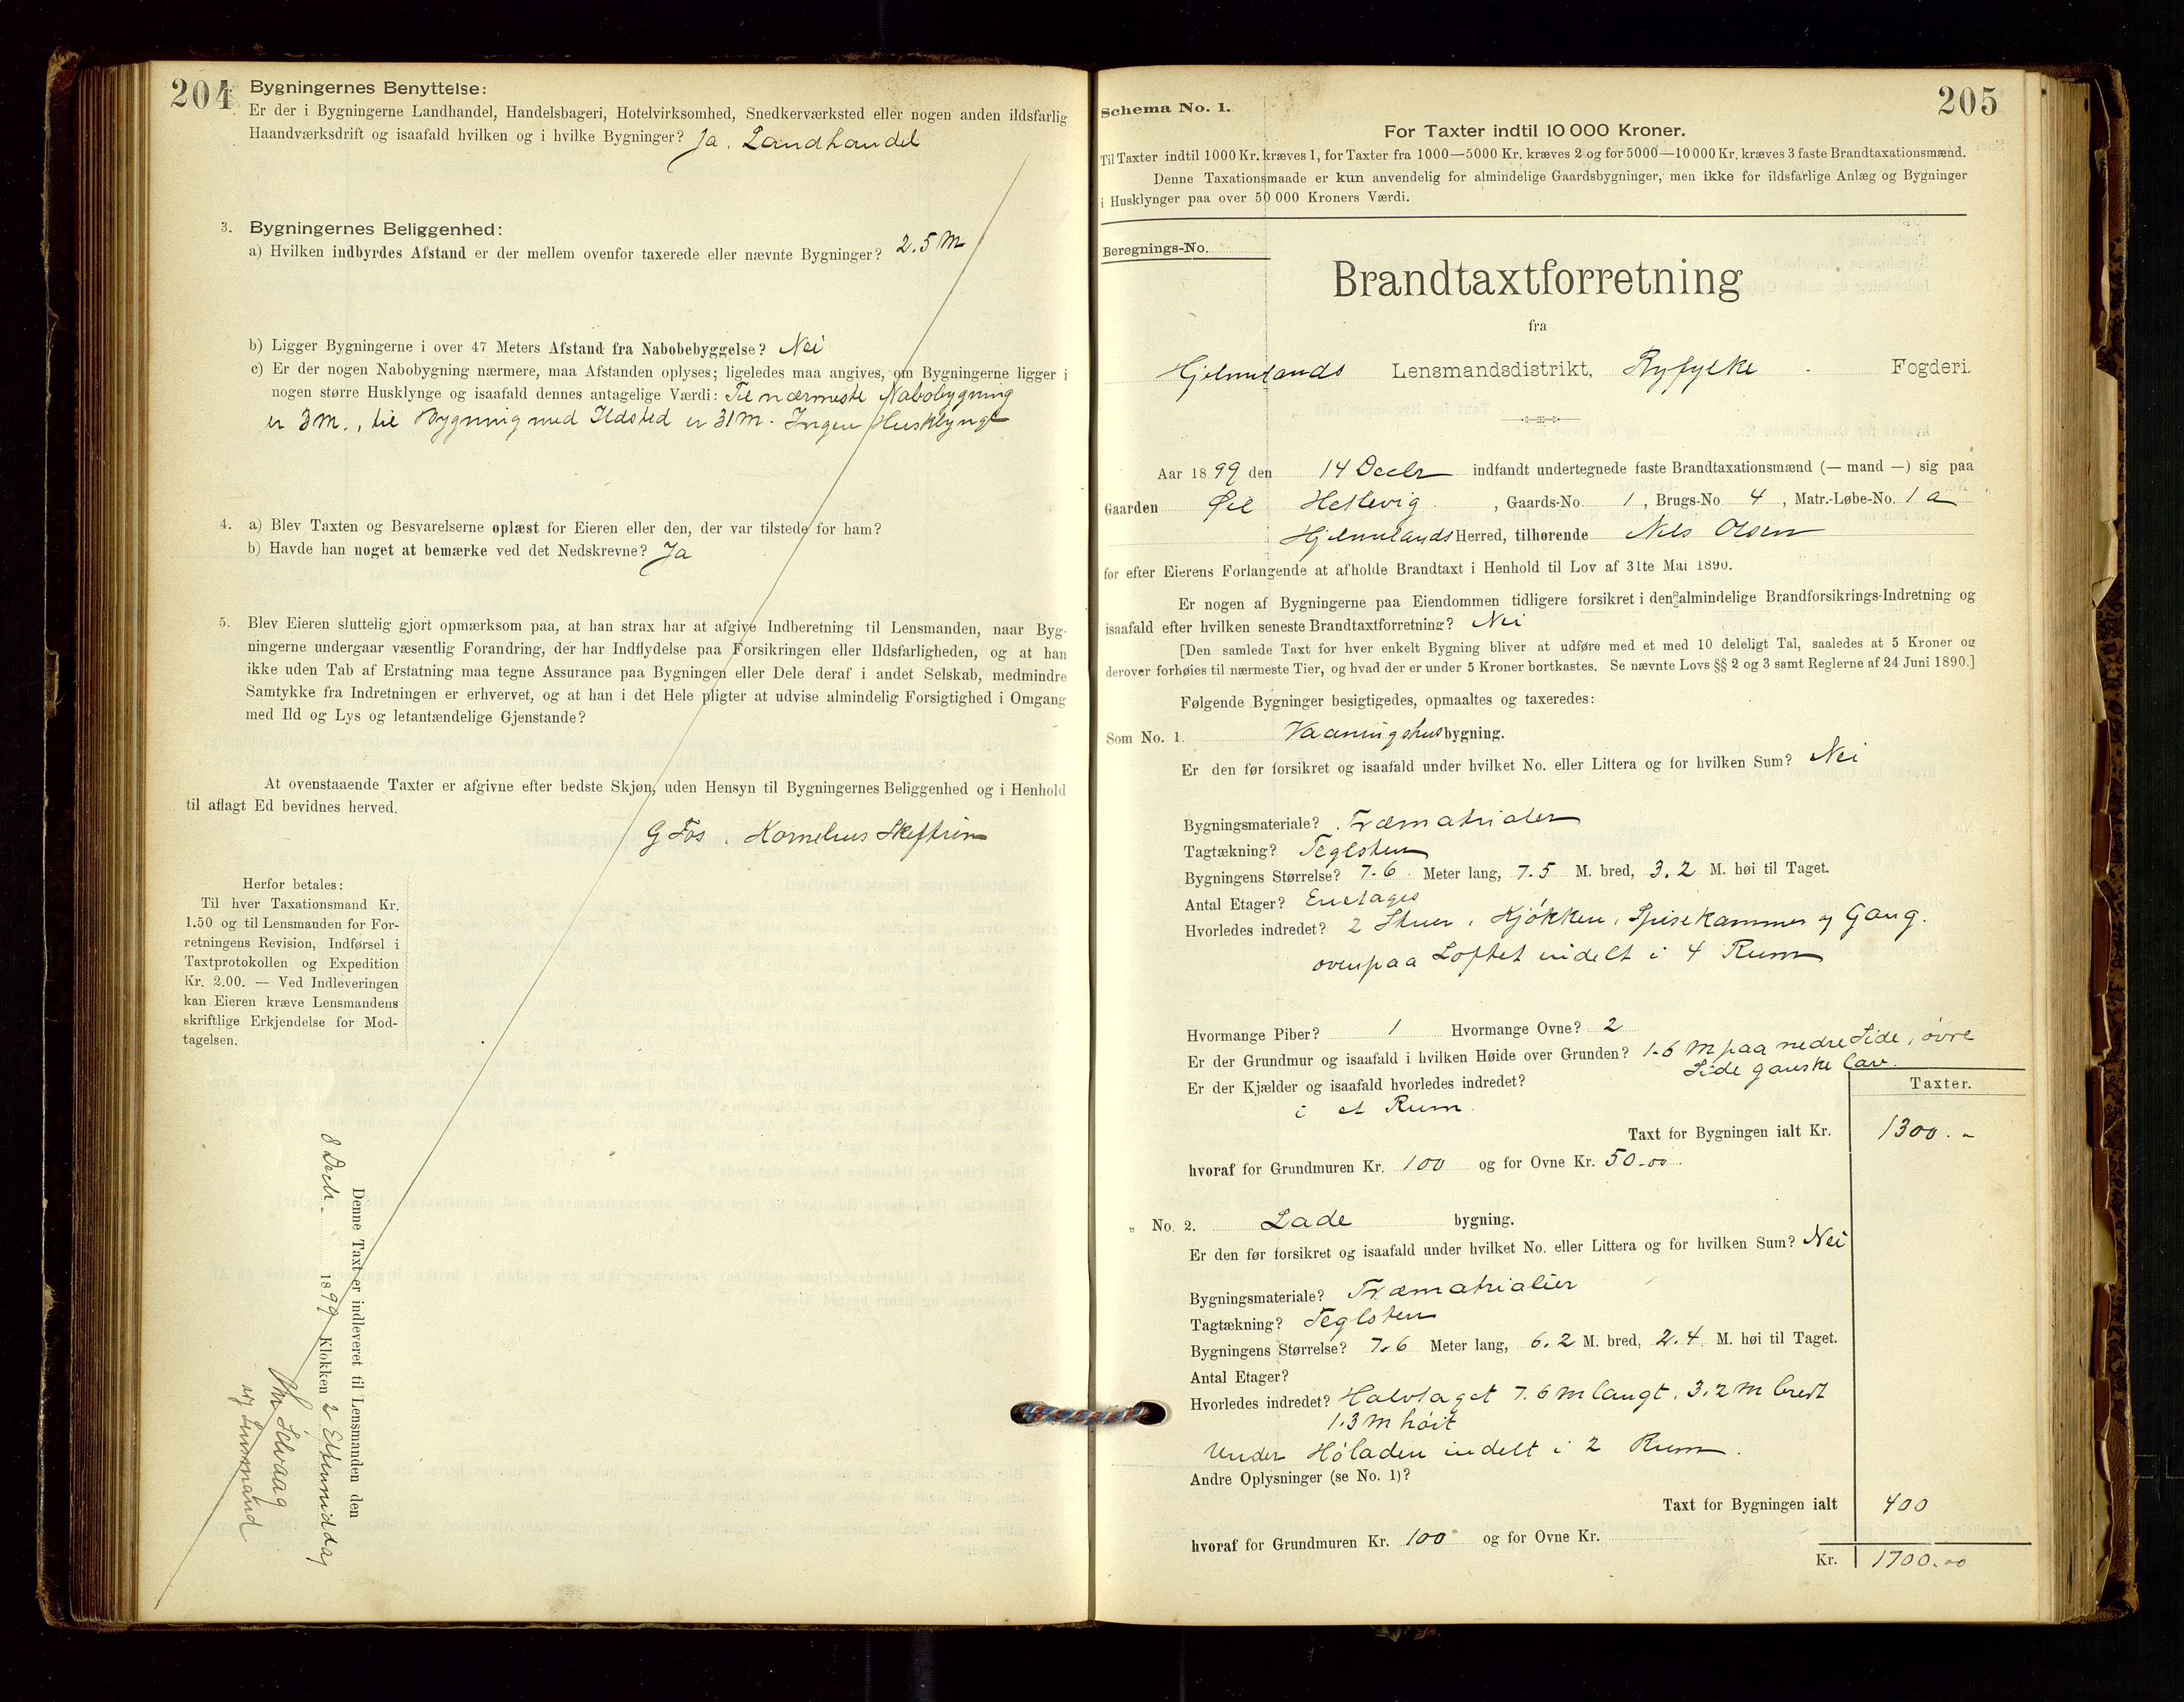 204
Bygningernes Benyttelse:
Er der i Bygningerne Landhandel, Handelsbageri, Hotelvirksomhed, Snedkerværksted eller nogen anden ildsfarlig
Haandværksdrift og isaafald hvilken og i hvilke Bygninger? Ja, Landhandel
3. Bygningernes Beliggenhed:
a) Hvilken indbyrdes Afstand er der mellem ovenfor taxerede eller nævnte Bygninger? 2.5 M
b) Ligger Bygningerne i over 47 Meters Afstand fra Nabobebyggelse? Nei
c) Er der nogen Nabobygning nærmere, maa Afstanden oplyses; ligeledes maa angives, om Bygningerne ligger i
nogen større Husklynge og isaafald dennes antagelige Værdi: Til nærmeste Nabobygning
er 3 M., til Bygning med Ildsted er 31 M. Ingen Husklynge
4. a) Blev Taxten og Besvarelserne oplæst for Eieren eller den, der var tilstede for ham?
b) Havde han noget at bemærke ved det Nedskrevne? Ja
5. Blev Eieren sluttelig gjort opmærksom paa, at han strax har at afgive Indberetning til Lensmanden, naar Byg-
ningerne undergaar væsentlig Forandring, der har Indflydelse paa Forsikringen eller Ildsfarligheden, og at han
ikke uden Tab af Erstatning maa tegne Assurance paa Bygningen eller Dele deraf i andet Selskab, medmindre
Samtykke fra Indretningen er erhvervet, og at han i det Hele pligter at udvise almindelig Forsigtighed i Omgang
med Ild og Lys og letantændelige Gjenstande?
At ovenstaaende Taxter er afgivne efter bedste Skjøn, uden Hensyn til Bygningernes Beliggenhed og i Henhold
til aflagt Ed bevidnes herved.
G Fos. Kornelius
Herfor betales:
Til hver Taxationsmand Kr.
1.50 og til Lensmanden for For-
retningens Revision, Indførsel i
Taxtprotokollen og Expedition
Kr. 2.00. — Ved Indleveringen
kan Eieren kræve Lensmandens
skriftlige Erkjendelse for Mod-
tagelsen.
Denne Taxt er indleveret til Lensmanden den
8 Decb. 1899 Klokken 2 Eftermiddag
Selvaag
205
Schema No. 1.
For Taxter indtil 10 000 Kroner.
Til Taxter indtil 1000 Kr. kræves 1, for Taxter fra 1000—5000 Kr. kræves 2 og for 5000—10 000 Kr. kræves 3 faste Brandtaxationsmænd.
Denne Taxationsmaade er kun anvendelig for almindelige Gaardsbygninger, men ikke for ildsfarlige Anlæg og Bygninger
i Husklynger paa over 50 000 Kroners Værdi.
Beregnings-No.
Brandtaxtforretning
fra
Hjelmelands Lensmandsdistrikt, Ryfylke Fogderi.
Aar 1899 den 14 Decbr indfandt undertegnede faste Brandtaxationsmænd (— mand —) sig paa
Gaarden Hettevig, Gaards-No. 1, Brugs-No. 4, Matr.-Løbe-No. 1 a
Hjelmelands Herred, tilhørende Nils Olsen
for efter Eierens Forlangende at afholde Brandtaxt i Henhold til Lov af 31te Mai 1890.
Er nogen af Bygningerne paa Eiendommen tidligere forsikret i den almindelige Brandforsikrings-Indretning og
isaafald efter hvilken seneste Brandtaxtforretning? Nei
[Den samlede Taxt for hver enkelt Bygning bliver at udføre med et med 10 deleligt Tal, saaledes at 5 Kroner og
derover forhøies til nærmeste Tier, og hvad der er under 5 Kroner bortkastes. Se nævnte Lovs §§ 2 og 3 samt Reglerne af 24 Juni 1890.]
Følgende Bygninger besigtigedes, opmaaltes og taxeredes:
Som No. 1. Vaaningshusbygning.
Er den før forsikret og isaafald under hvilket No. eller Littera og for hvilken Sum? Nei
Bygningsmateriale? Træmatrialer
Tagtækning? Teglsten
Bygningens Størrelse? 7.6 Meter lang, 7.5 M. bred, 3.2 M. høi til Taget.
Antal Etager? Enetages
Hvorledes indredet? 2 Stuer, Kjøkken, Spisekammer og Gang.
ovenpaa Loftet indelt i 4 Rum
Hvormange Piber? 1 Hvormange Ovne? 2
Er der Grundmur og isaafald i hvilken Høide over Grunden? 1.6 M paa nedre Side, øvre
Side ganske lav.
Er der Kjælder og isaafald hvorledes indredet?
i et Rum.
Taxter.
Taxt for Bygningen ialt Kr. 1300. -
hvoraf for Grundmuren Kr. 100 og for Ovne Kr. 50.00
„ No. 2. Lade bygning.
Er den før forsikret og isaafald under hvilket No. eller Littera og for hvilken Sum? Nei
Bygningsmateriale? Træmatrialier
Tagtækning? Teglsten
Bygningens Størrelse? 7.6 Meter lang, 6.2 M. bred, 2.4 M. høi til Taget.
Antal Etager?
Hvorledes indredet? Halvtaget 7.6 M langt, 3.2 M bredt
1.3 M høit
Under Høladen indelt i 2 Rum.
Andre Oplysninger (se No. 1)?
Taxt for Bygningen ialt 400
hvoraf for Grundmuren Kr. 100 og for Ovne Kr.
Kr. 1700.00